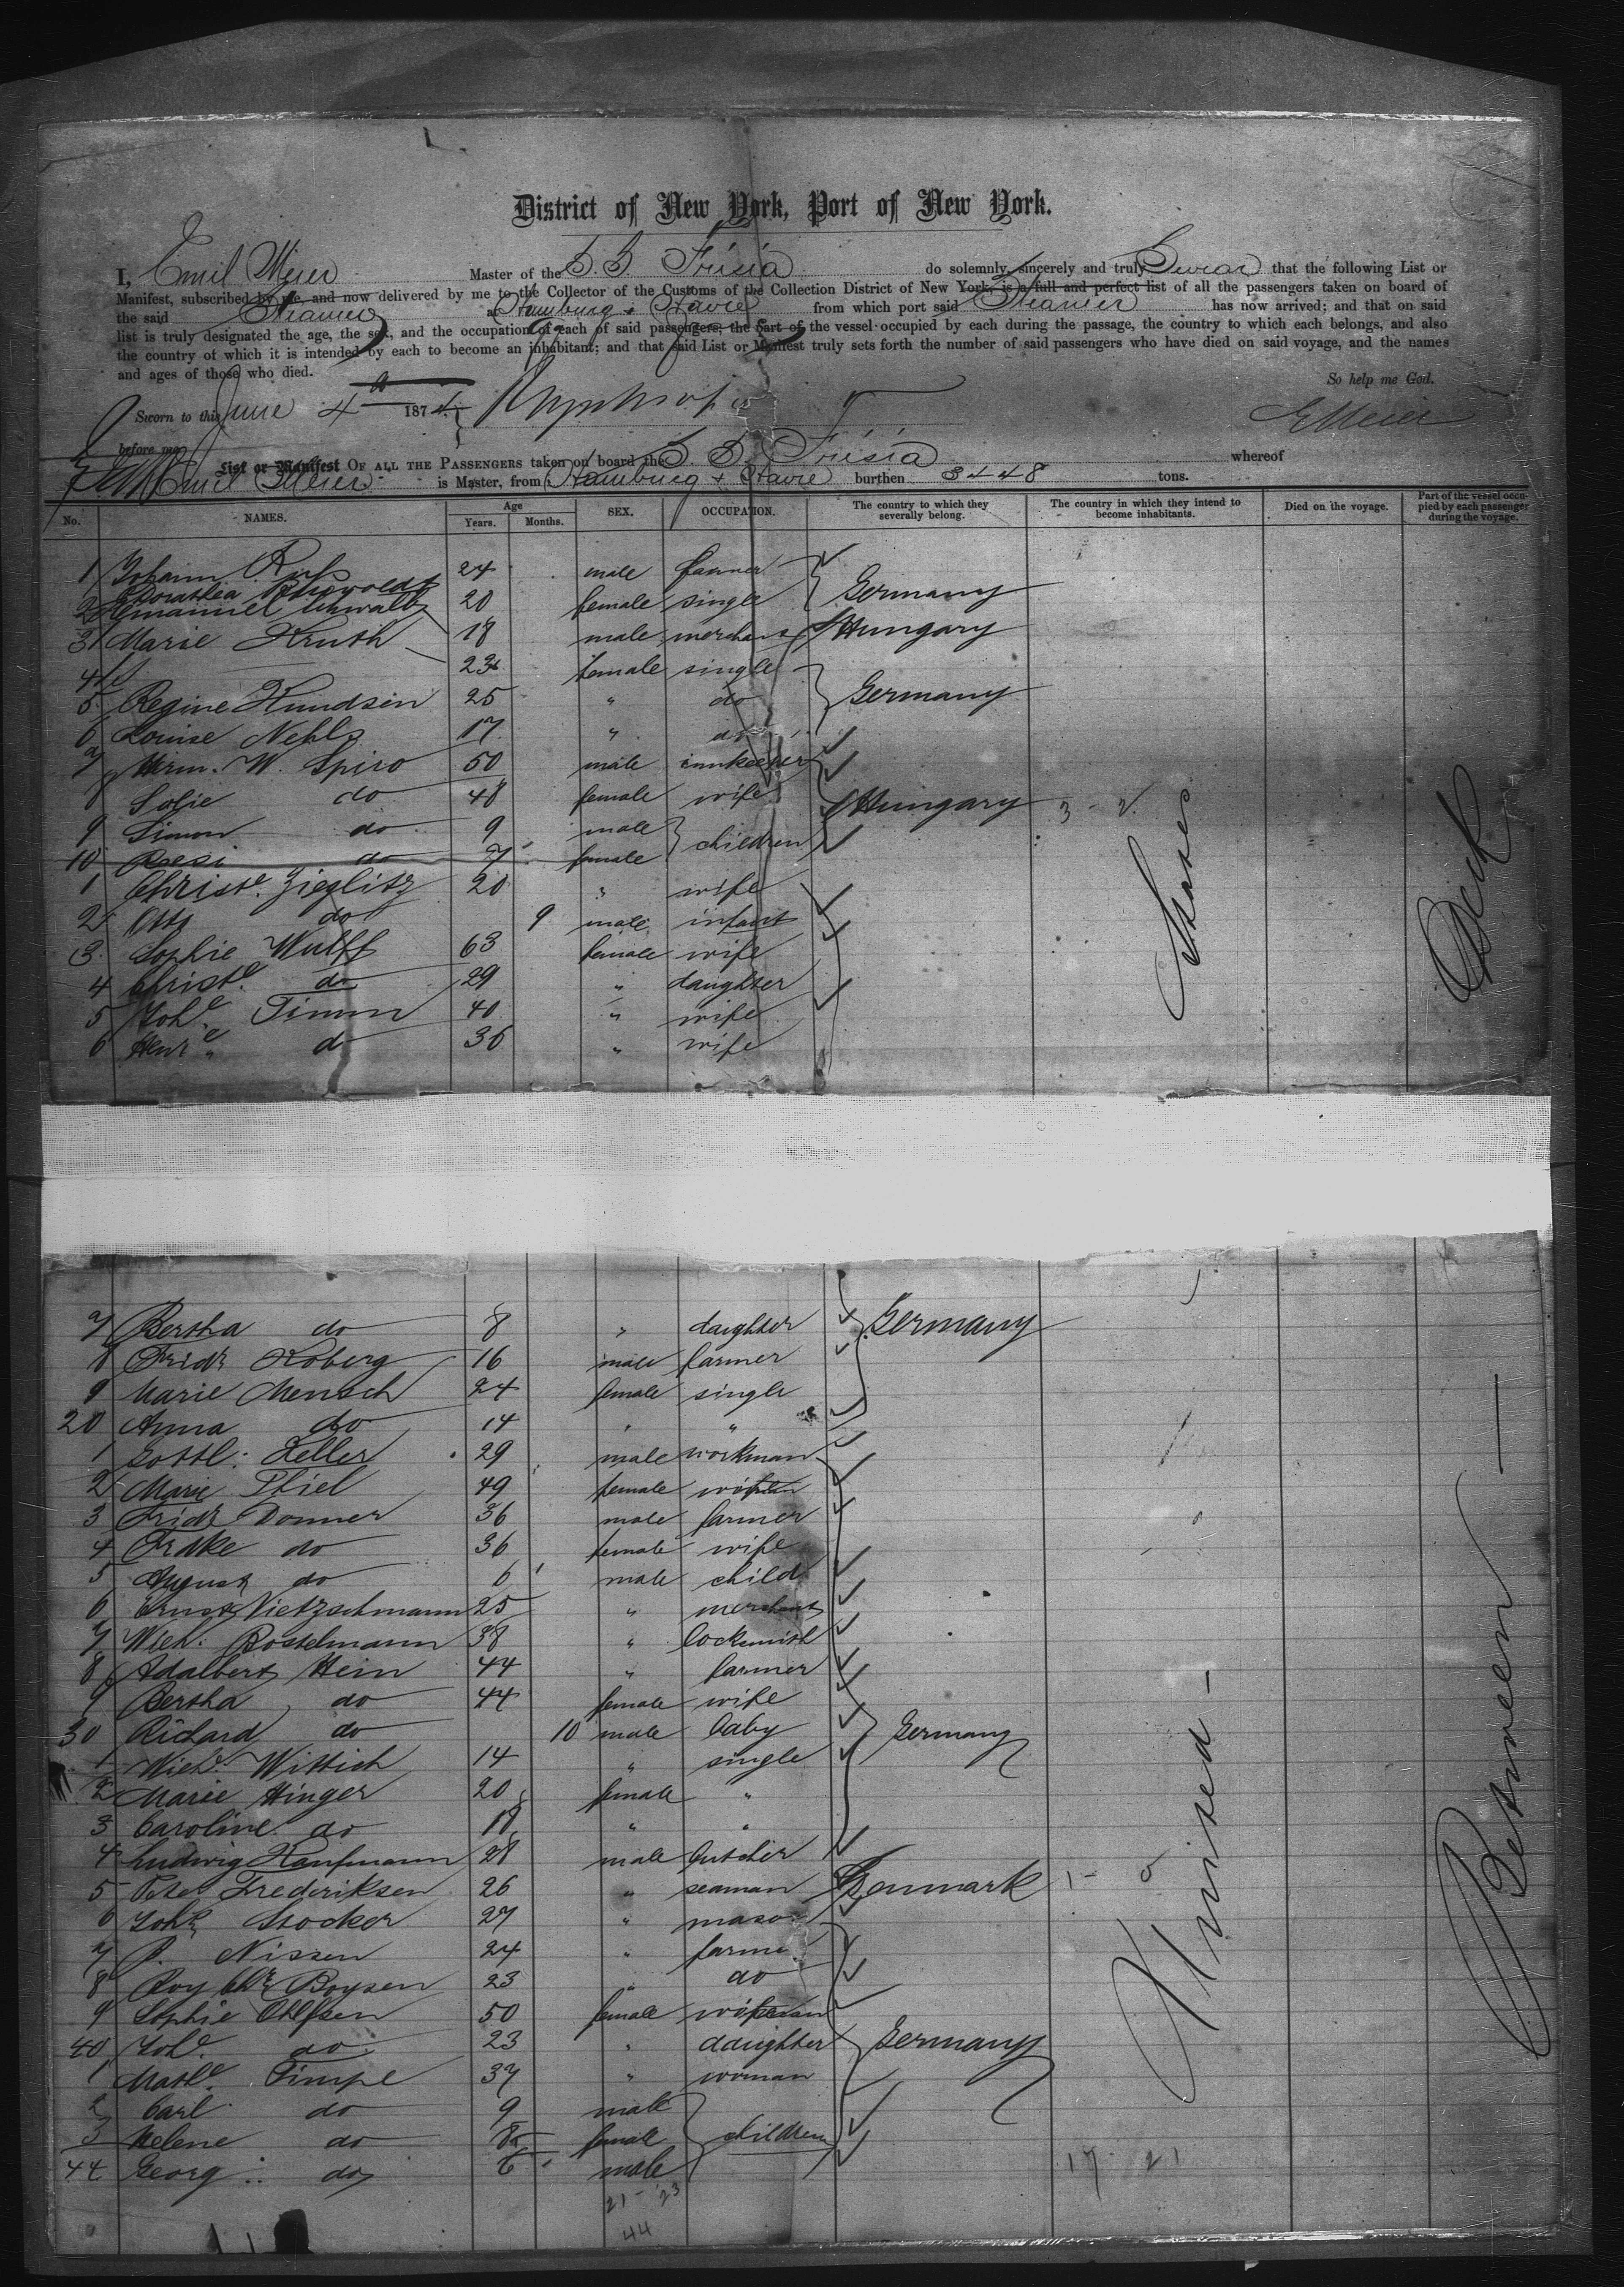 District of New York, Port of New York.
I, Emil Meier Master of the S. S. Frisia do solemnly, sincerely and truly Swear that the following List or
Manifest, subscribed by me, and now delivered by me to the Collector of the Customs of the Collection District of New York, is a full and perfect list of all the passengers taken on board of
the said Steamer at Hamburg & Havre from which port said Steamer has now arrived; and that on said
list is truly designated the age, the sex, and the occupation of each of said passengers, the part of the vessel occupied by each during the passage, the country to which each belongs, and also
the country of which it is intended by each to become an inhabitant; and that said List or Manifest truly sets forth the number of said passengers who have died on said voyage, and the names
and ages of those who died.
So help me God.
Sworn to this June 4 1874
EMeier
before me
List or Manifest OF ALL THE PASSENGERS taken on board the S. S. Frisia whereof
Emil Meier is Master, from Hamburg & Havre burthen 3448 tons.
No. NAMES. Age Years. Months. SEX. OCCUPATION. The country to which they severally belong. The country in which they intend to become inhabitants. Died on the voyage. Part of the vessel occupied by each passenger during the voyage.
1 Johann 24 male farmer
2 Dorothea 20 female single Germany
3 Emanuel 18 male merchant Hungary
4 Marie Kruth 23 female single
5 Regine Knudsen 25 " do Germany
6 Louise Nehls 17 " do
7 Hrm. W. Spiro 50 male innkeeper
8 Sofie do 48 female wife Hungary 3 - 2
9 Simon do 9 male children
10 Resi do 7 female
1 Christe. Zieglitz 20 " wife
2 Otto do 9 male infant
3 Sophie Wulff 63 female wife
4 Christe. do 29 " daughter
5 Johe. Timm 40 " wife
6 Henre. do 36 " wife
7 Bertha do 8 " daughter Germany
8 Fridr Koberg 16 male farmer
9 Marie Mensch 24 female single
20 Anna do 14 " "
1 Gottl: Zeller 29 male workman
2 Marie Thiel 49 female
3 Fridr Donner 36 male farmer
4 Frdke do 36 female wife
5 August do 6 male child
6 Ernst Nietzschmann 25 " merchant
7 Wilh. Bosselmann 38 " locksmith
8 Adalbert Hein 44 " farmer
9 Bertha do 44 female wife
30 Richard do 10 male baby Germany
1 Wilh. Wittich 14 " single
2 Marie Hinger 20 female "
3 Caroline do 18 " "
4 Ludwig Kaufmann 28 male butcher
5 Peter Frederiksen 26 " seaman Denmark 1 - 0
6 Johs Stocker 27 " mason
7 P. Nissen 24 " farmer
8 Roy Chr Boysen 23 " do
9 Sophie 50 female
40 Johe. do 23 " daughter Germany
1 Mathe. Timpe 37 " woman
2 Carl do 9 male
3 Helene do 8 female children
44 Georg do 6 male
17 21
21 - 23
44
States
United
Between
Deck